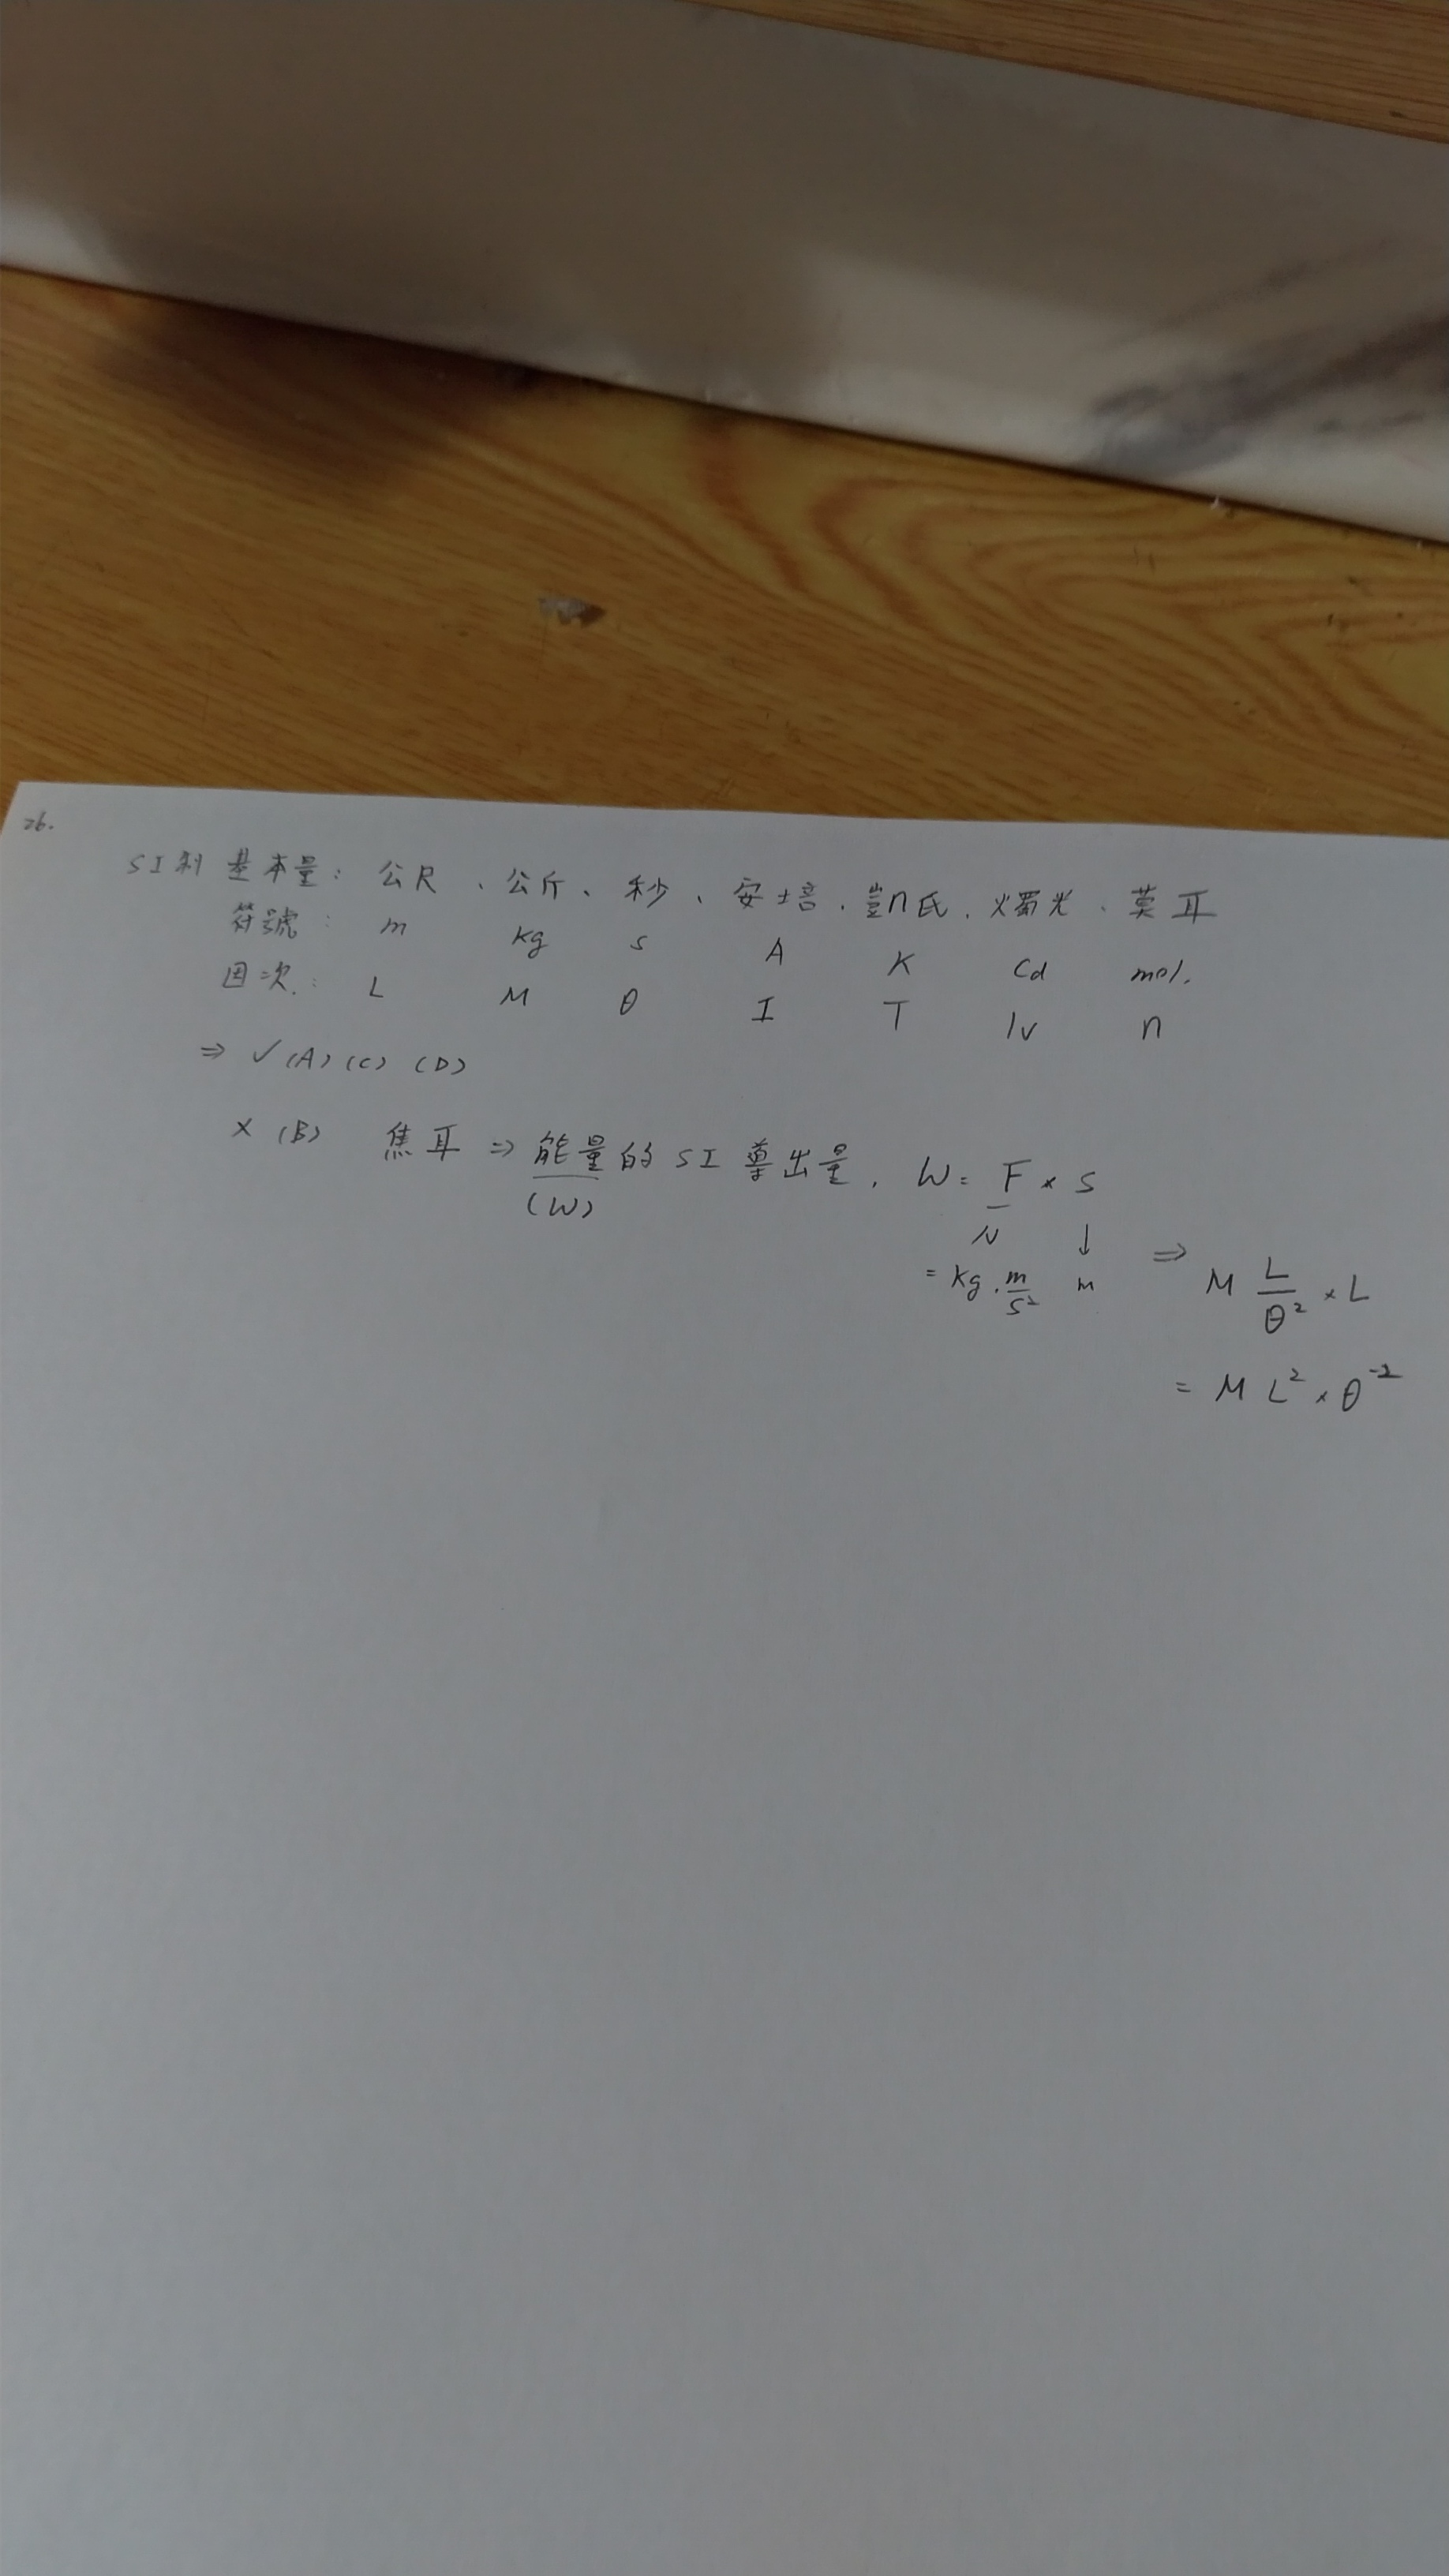 26.
SI制 基本量: 公尺、公斤、秒、安培、凱氏、燭光、莫耳
符號: m kg s A K Cd mol.
因次.: L M θ I T Iv n
⇒ ✓(A)(C)(D)
× (B) 焦耳 ⇒ 能量的SI導出量, W = F × S
(W) N ↓
= kg·m/s² m ⇒ M L/θ² × L
= M L² × θ⁻²